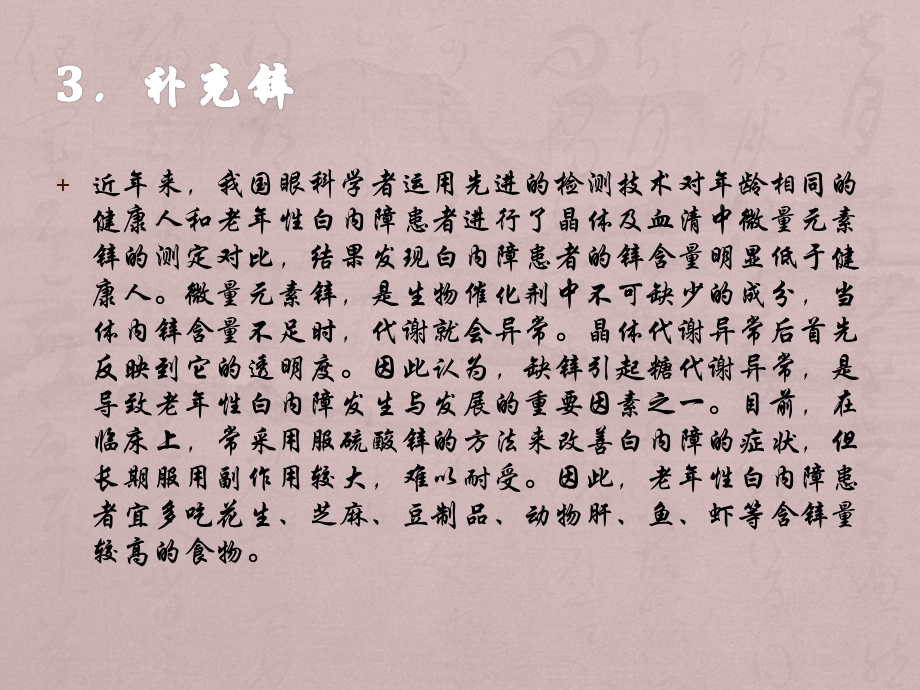 3．补充锌
+ 近年来，我国眼科学者运用先进的检测技术对年龄相同的
健康人和老年性白内障患者进行了晶体及血清中微量元素
锌的测定对比，结果发现白内障患者的锌含量明显低于健
康人。微量元素锌，是生物催化剂中不可缺少的成分，当
体内锌含量不足时，代谢就会异常。晶体代谢异常后首先
反映到它的透明度。因此认为，缺锌引起糖代谢异常，是
导致老年性白内障发生与发展的重要因素之一。目前，在
临床上，常采用服硫酸锌的方法来改善白内障的症状，但
长期服用副作用较大，难以耐受。因此，老年性白内障患
者宜多吃花生、芝麻、豆制品、动物肝、鱼、虾等含锌量
较高的食物。